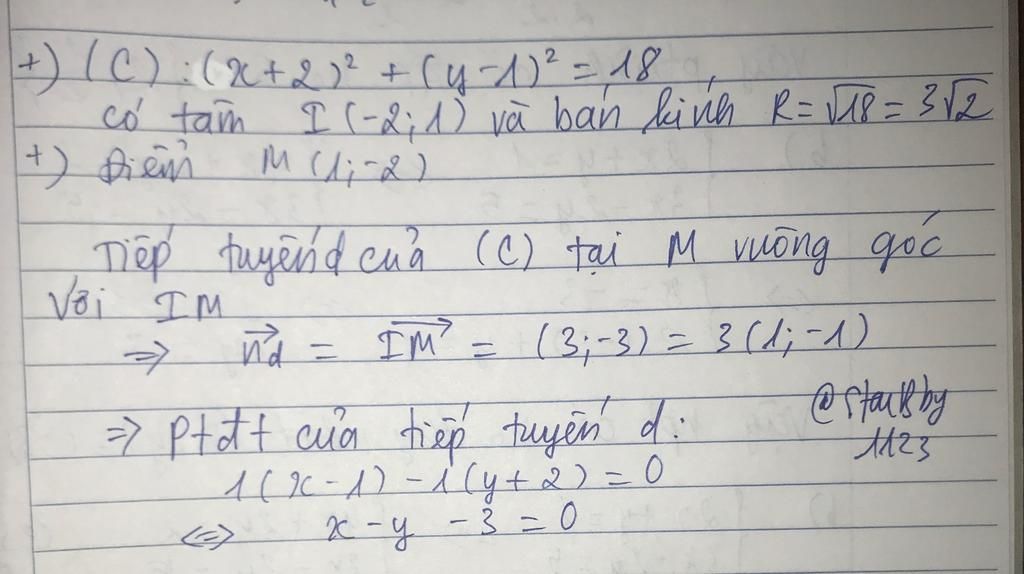 +) (C): (x+2)² + (y-1)² = 18,
có tâm I(-2;1) và bán kính R = √18 = 3√2
+) Điểm M(1;-2)
Tiếp tuyến d của (C) tại M vuông góc
Với IM
=> n⃗d = IM⃗ = (3;-3) = 3(1;-1)
=> Ptđt của tiếp tuyến d:
1(x-1) - 1(y+2) = 0
<=> x - y - 3 = 0
1123